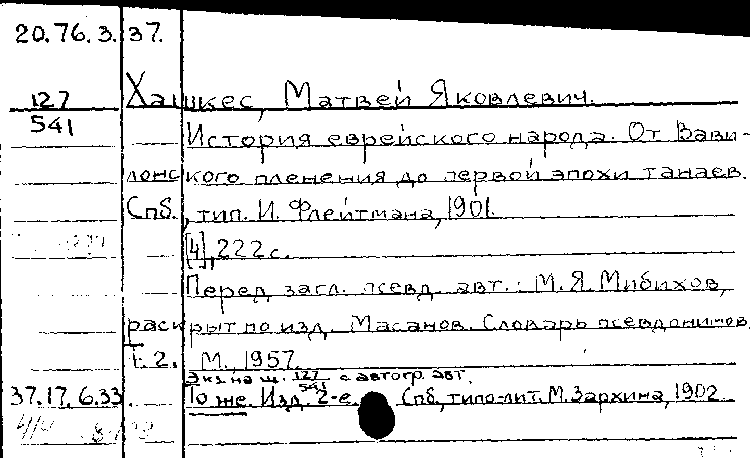 20.76.3.37.
127
541
Хашкес, Матвей Яковлевич.
История еврейского народа. От Вави-
лонского пленения до первой эпохи танаев.
Спб., тип. И. Флейтмана, 1901.
[4], 222 с.
Перед загл. псевд. авт.: М. Я. Мибихов,
раскрыт по изд. Масанов. Словарь псевдонимов,
т. 2. М., 1957
Экз. на ш. 127/541 с автогр. авт.
37.17.6.33. То же. Изд. 2-е. Спб, типо-лит. М. Зархина, 1902